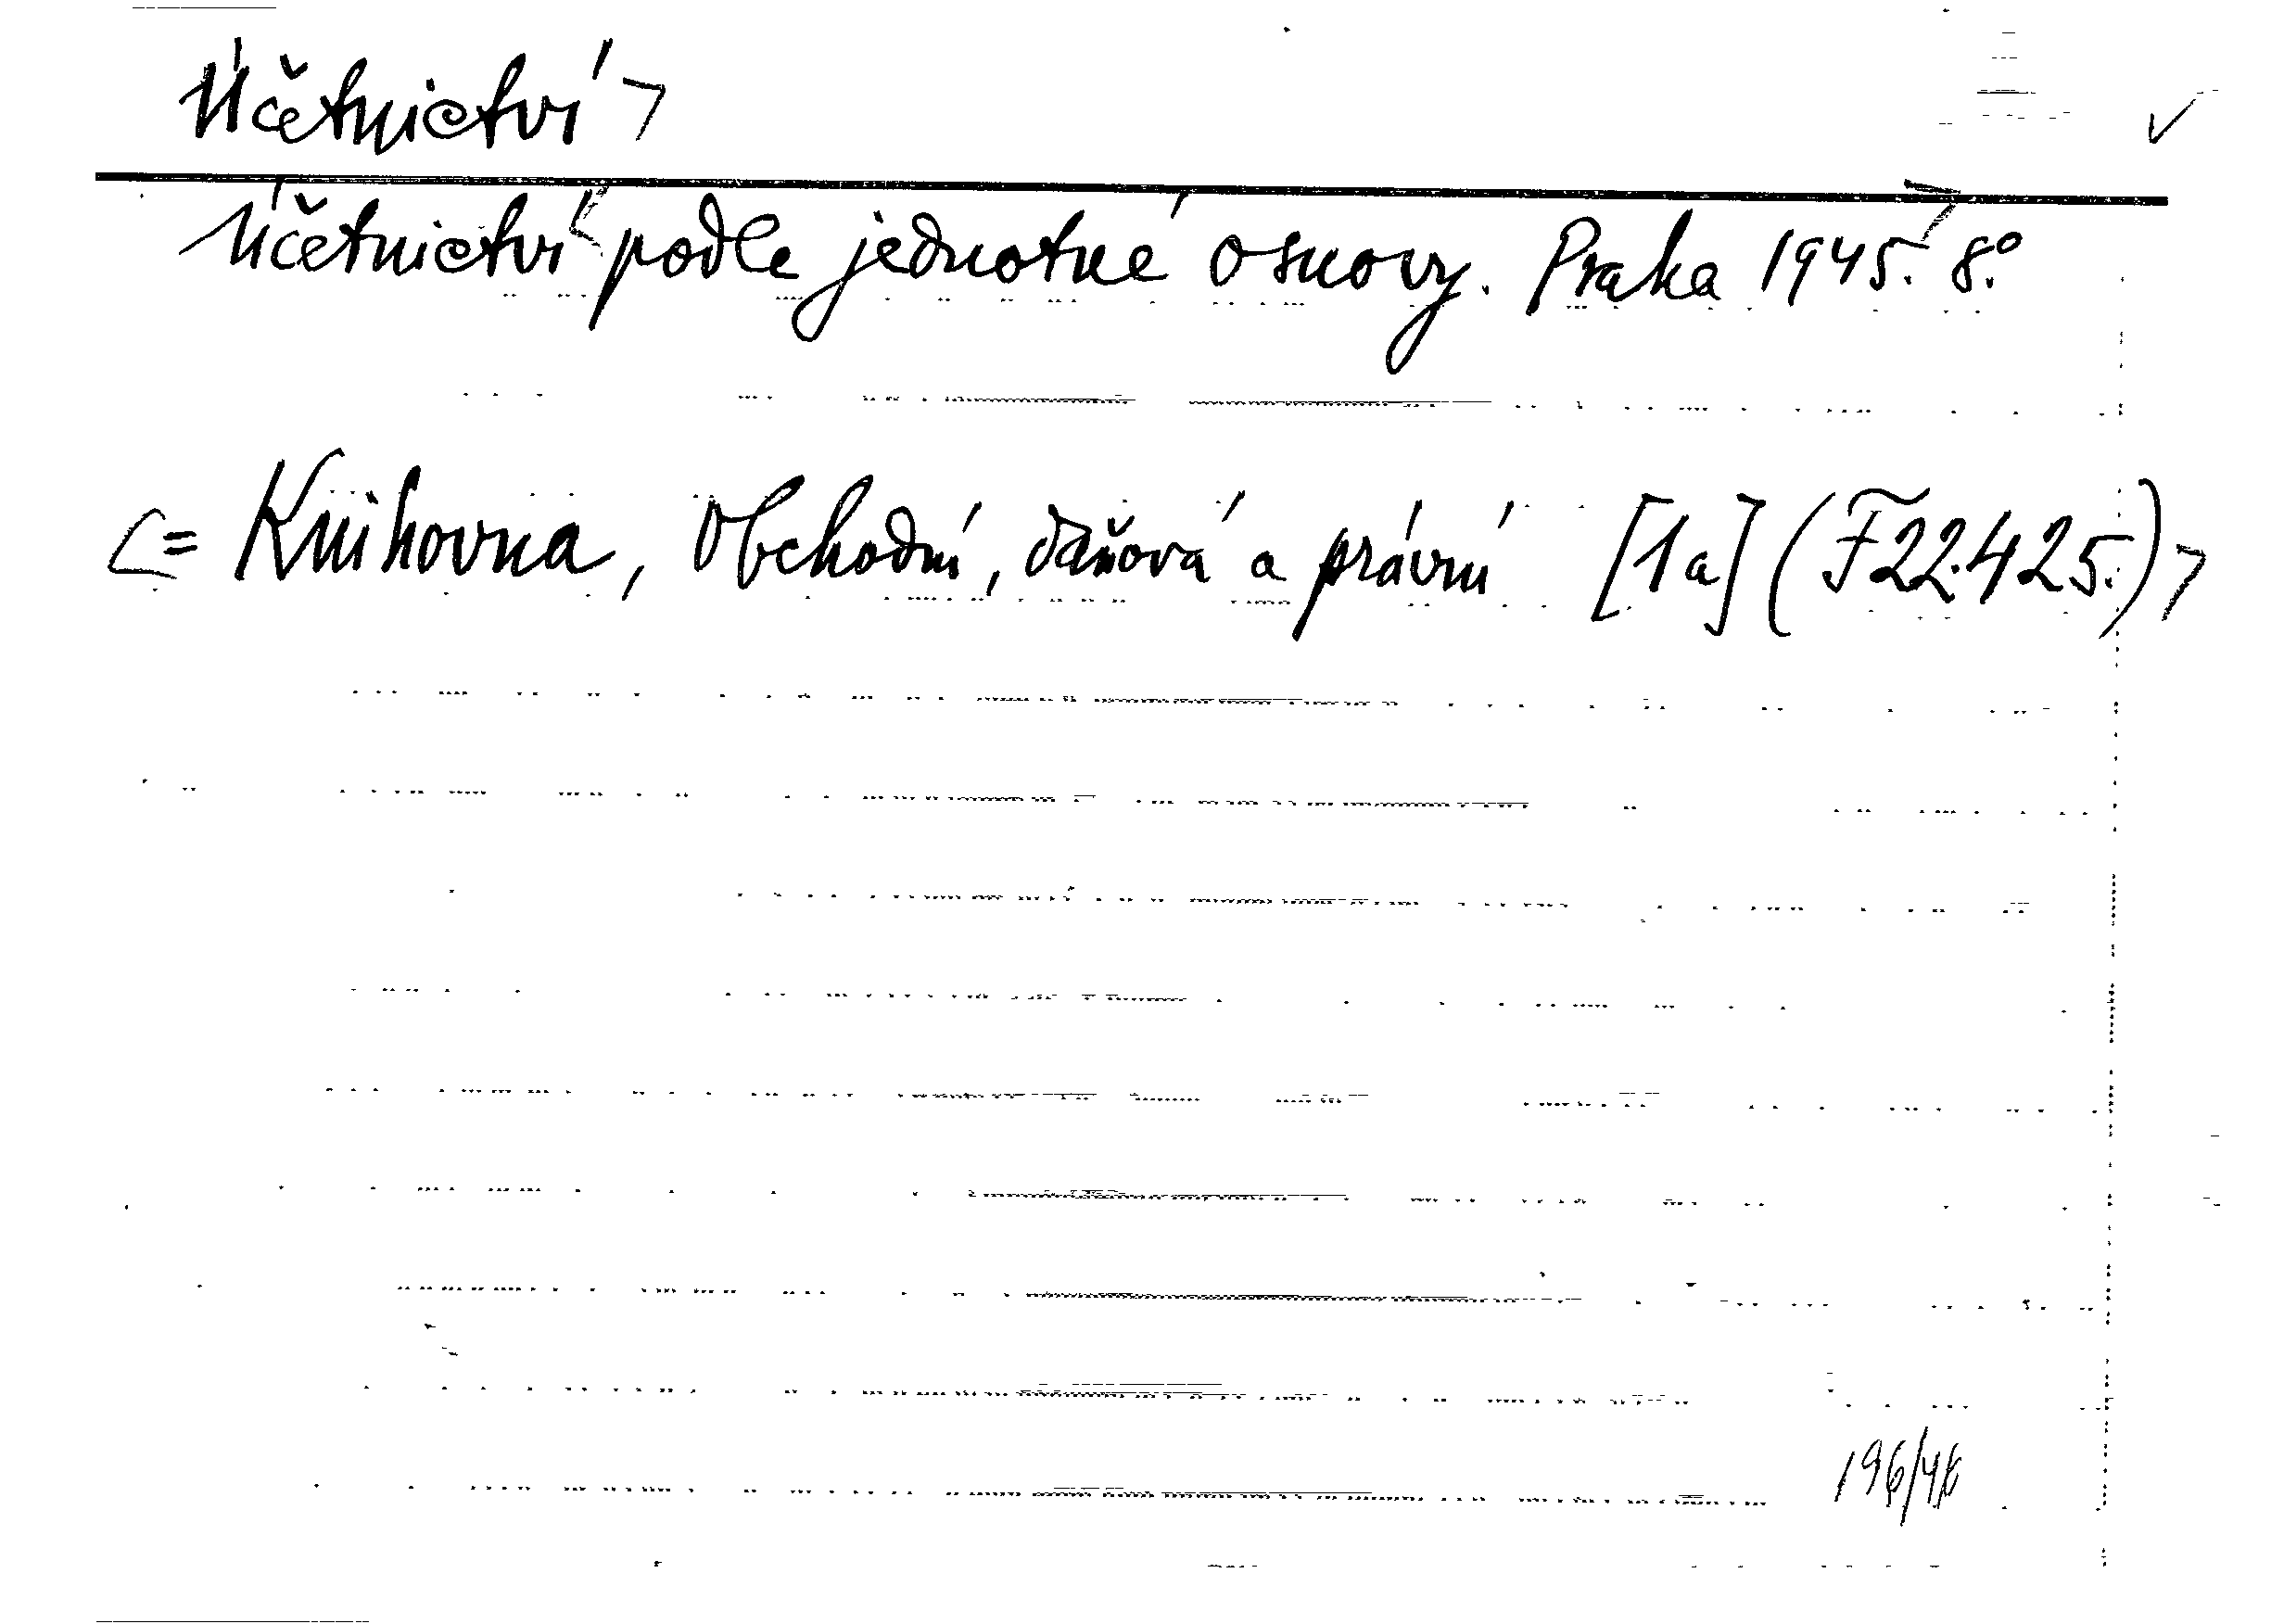 Účetnictví >
Účetnictví < podle jednotné osnovy. Praka 1945. 8.°
<= Knihovna, Obchodní, daňová a právní [1a] (F22.425.) >
196/46